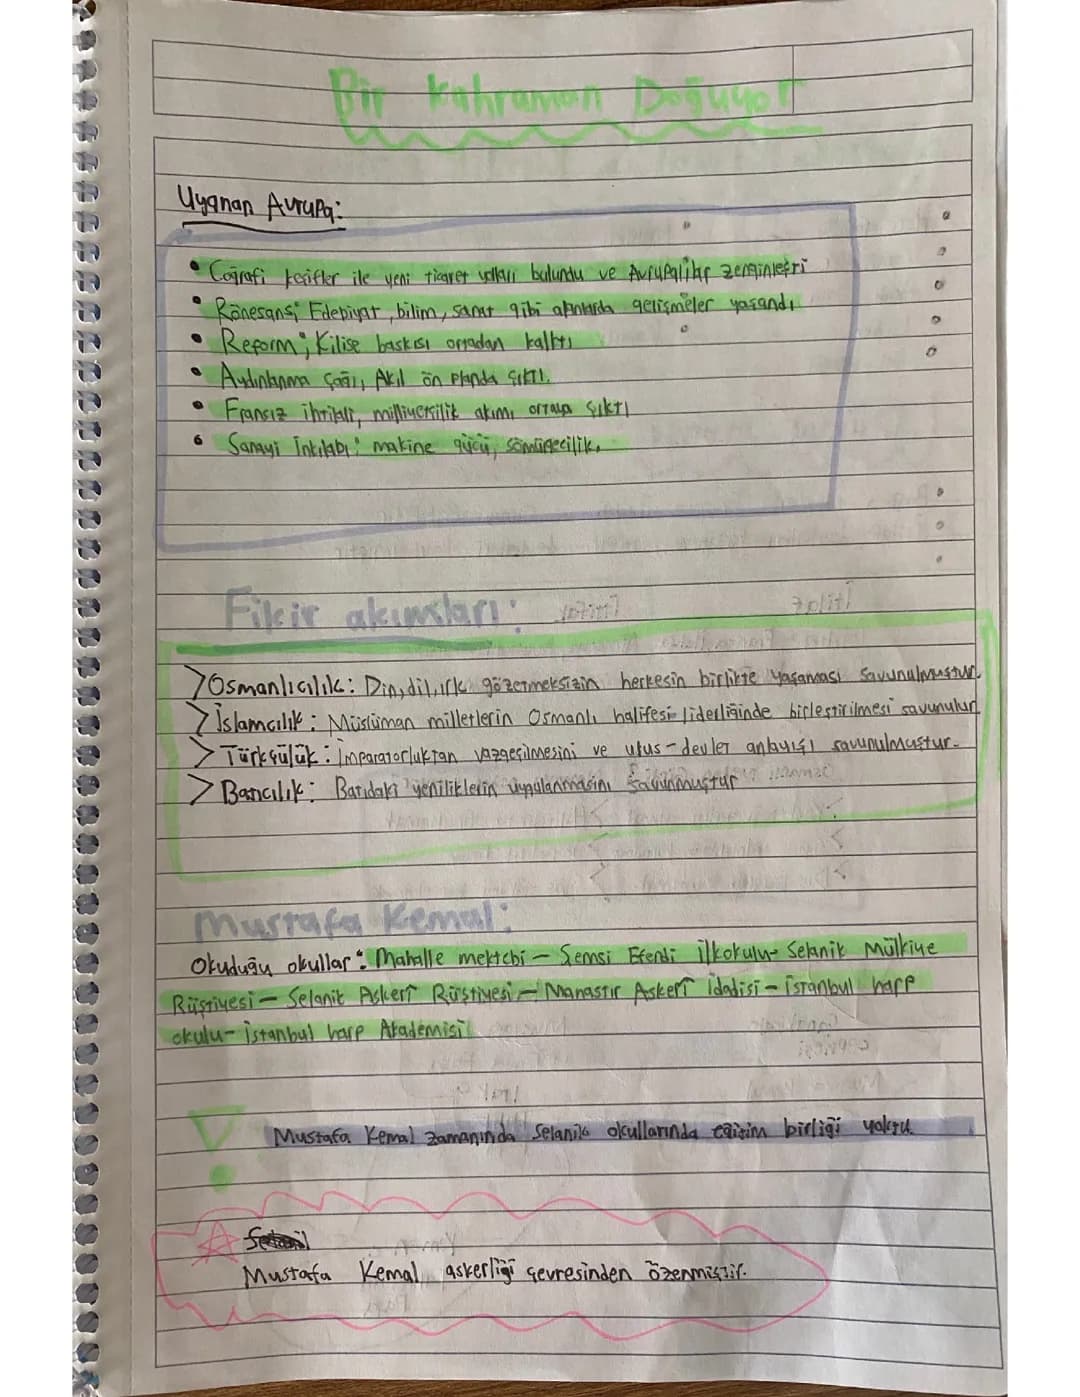 Bir Kahraman Doğuyor
Uyanan Avrupa:
• Coğrafi keşifler ile yeni ticaret yolları bulundu ve Avrupalılar zenginleşti
• Rönesans; Edebiyat, bilim, sanat gibi alanlarda gelişmeler yaşandı
• Reform; Kilise baskısı ortadan kalktı
• Aydınlanma Çağı, Akıl ön planda çıktı.
• Fransız ihtilali, milliyetçilik akımı ortaya çıktı
• Sanayi İnkılabı: makine gücü, sömürgecilik.
Fikir akımları:
> Osmanlıcılık: Din, dil, ırk gözetmeksizin herkesin birlikte yaşaması savunulmuştur.
> İslamcılık: Müslüman milletlerin Osmanlı halifesi liderliğinde birleştirilmesi savunulur
> Türkçülük: İmparatorluktan vazgeçilmesini ve ulus-devlet anlayışı savunulmuştur.
> Batıcılık: Batıdaki yeniliklerin uygulanmasını savunmuştur
Mustafa Kemal:
Okuduğu okullar: Mahalle mektebi - Şemsi Efendi İlkokulu - Selanik Mülkiye
Rüştiyesi - Selanik Askerî Rüştiyesi - Manastır Askerî İdadisi - İstanbul harp
okulu - İstanbul harp Akademisi
Mustafa Kemal zamanında Selanik okullarında eğitim birliği yoktu.
Mustafa Kemal askerliği çevresinden özenmiştir.